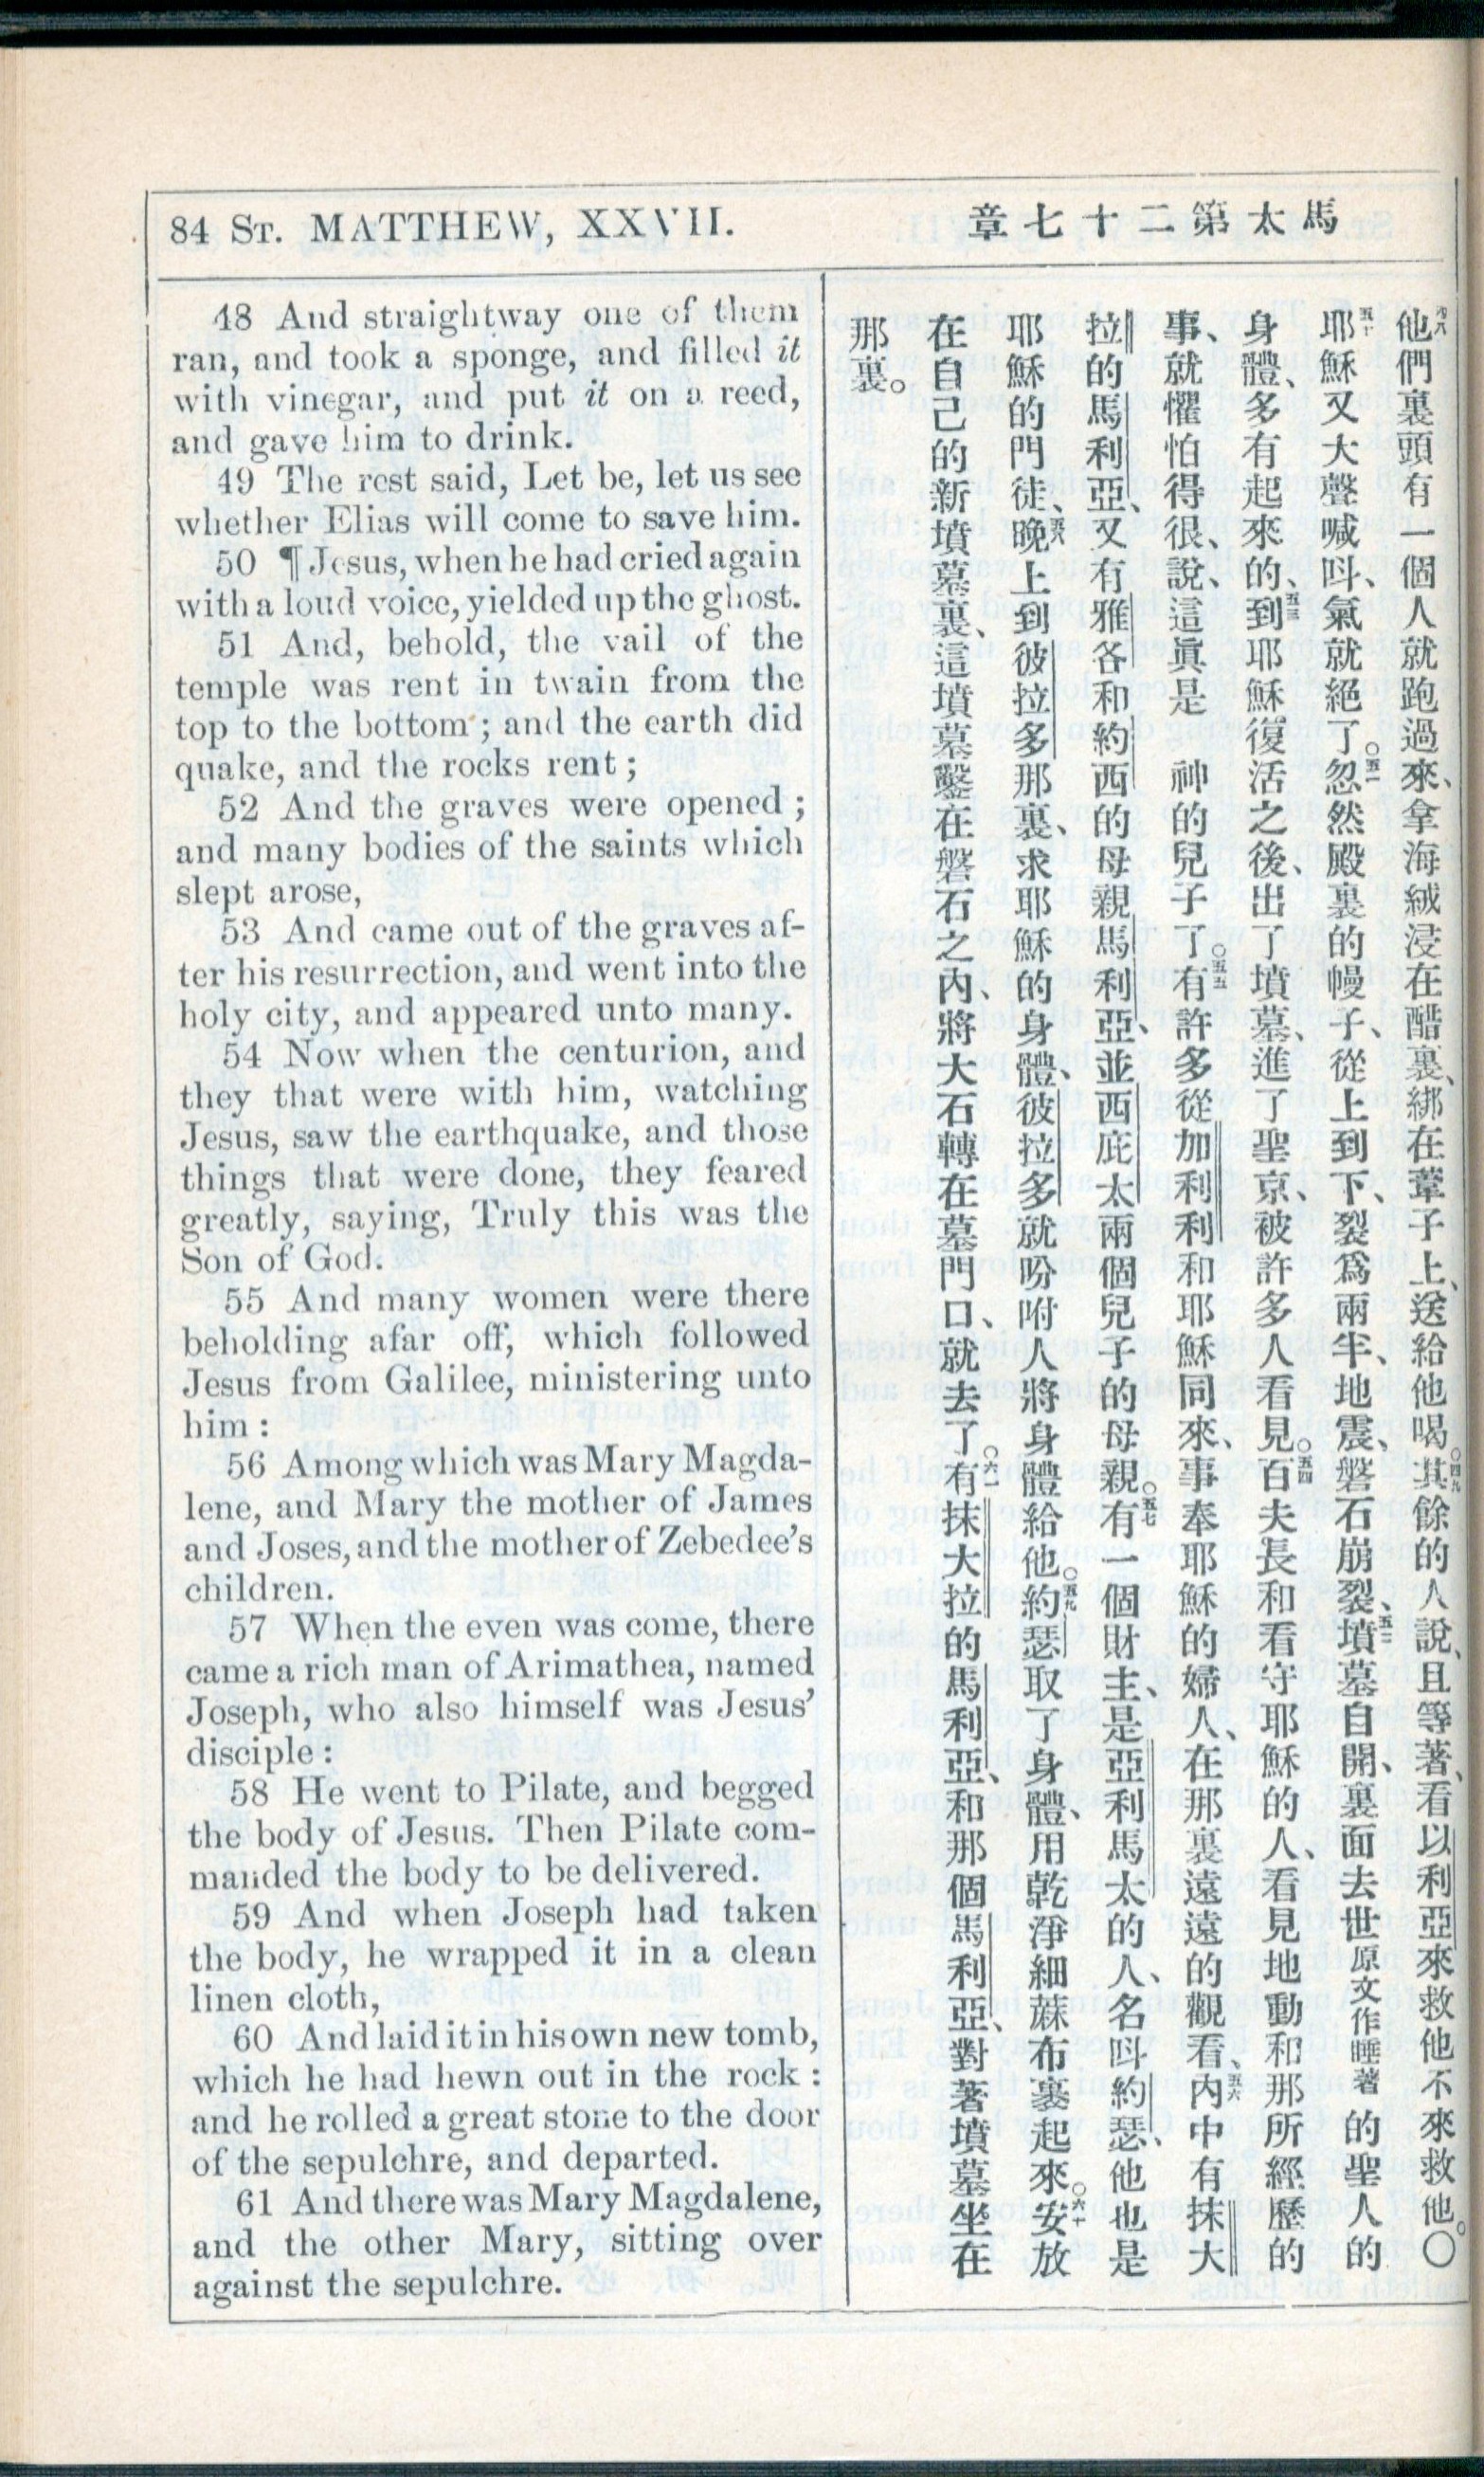 84 ST. MATTHEW, XXVII.
馬太第二十七章
48 And straightway one of them
ran, and took a sponge, and filled it
with vinegar, and put it on a reed,
and gave him to drink.
49 The rest said, Let be, let us see
whether Elias will come to save him.
50 ¶ Jesus, when he had cried again
with a loud voice, yielded up the ghost.
51 And, behold, the vail of the
temple was rent in twain from the
top to the bottom; and the earth did
quake, and the rocks rent;
52 And the graves were opened;
and many bodies of the saints which
slept arose,
53 And came out of the graves af-
ter his resurrection, and went into the
holy city, and appeared unto many.
54 Now when the centurion, and
they that were with him, watching
Jesus, saw the earthquake, and those
things that were done, they feared
greatly, saying, Truly this was the
Son of God.
55 And many women were there
beholding afar off, which followed
Jesus from Galilee, ministering unto
him:
56 Among which was Mary Magda-
lene, and Mary the mother of James
and Joses, and the mother of Zebedee's
children.
57 When the even was come, there
came a rich man of Arimathea, named
Joseph, who also himself was Jesus'
disciple:
58 He went to Pilate, and begged
the body of Jesus. Then Pilate com-
manded the body to be delivered.
59 And when Joseph had taken
the body, he wrapped it in a clean
linen cloth,
60 And laid it in his own new tomb,
which he had hewn out in the rock:
and he rolled a great stone to the door
of the sepulchre, and departed.
61 And there was Mary Magdalene,
and the other Mary, sitting over
against the sepulchre.
他們裏頭有一個人就跑過來、拿海絨浸在醋裏、綁在葦子上、送給他喝。四九其餘的人說、且等著、看以利亞來救他不來救他。〇
五十耶穌又大聲喊呌、氣就絕了。五一忽然殿裏的幔子、從上到下、裂爲兩半、地震、磐石崩裂、五二墳墓自開、裏面去世原文作睡著的聖人的
身體、多有起來的、五三到耶穌復活之後、出了墳墓、進了聖京、被許多人看見。五四百夫長和看守耶穌的人、看見地動和那所經歷的
事、就懼怕得很、說、這眞是 神的兒子了。五五有許多從加利利和耶穌同來、事奉耶穌的婦人、在那裏遠遠的觀看、五六內中有抹大
拉的馬利亞、又有雅各和約西的母親馬利亞、並西庇太兩個兒子的母親。五七有一個財主、是亞利馬太的人、名呌約瑟、他也是
耶穌的門徒、五八晚上到彼拉多那裏、求耶穌的身體、彼拉多就吩咐人將身體給他。五九約瑟取了身體、用乾淨細蔴布裹起來。六十安放
在自己的新墳墓裏、這墳墓鑿在磐石之內、將大石轉在墓門口、就去了。六一有抹大拉的馬利亞、和那個馬利亞、對著墳墓坐在
那裏。